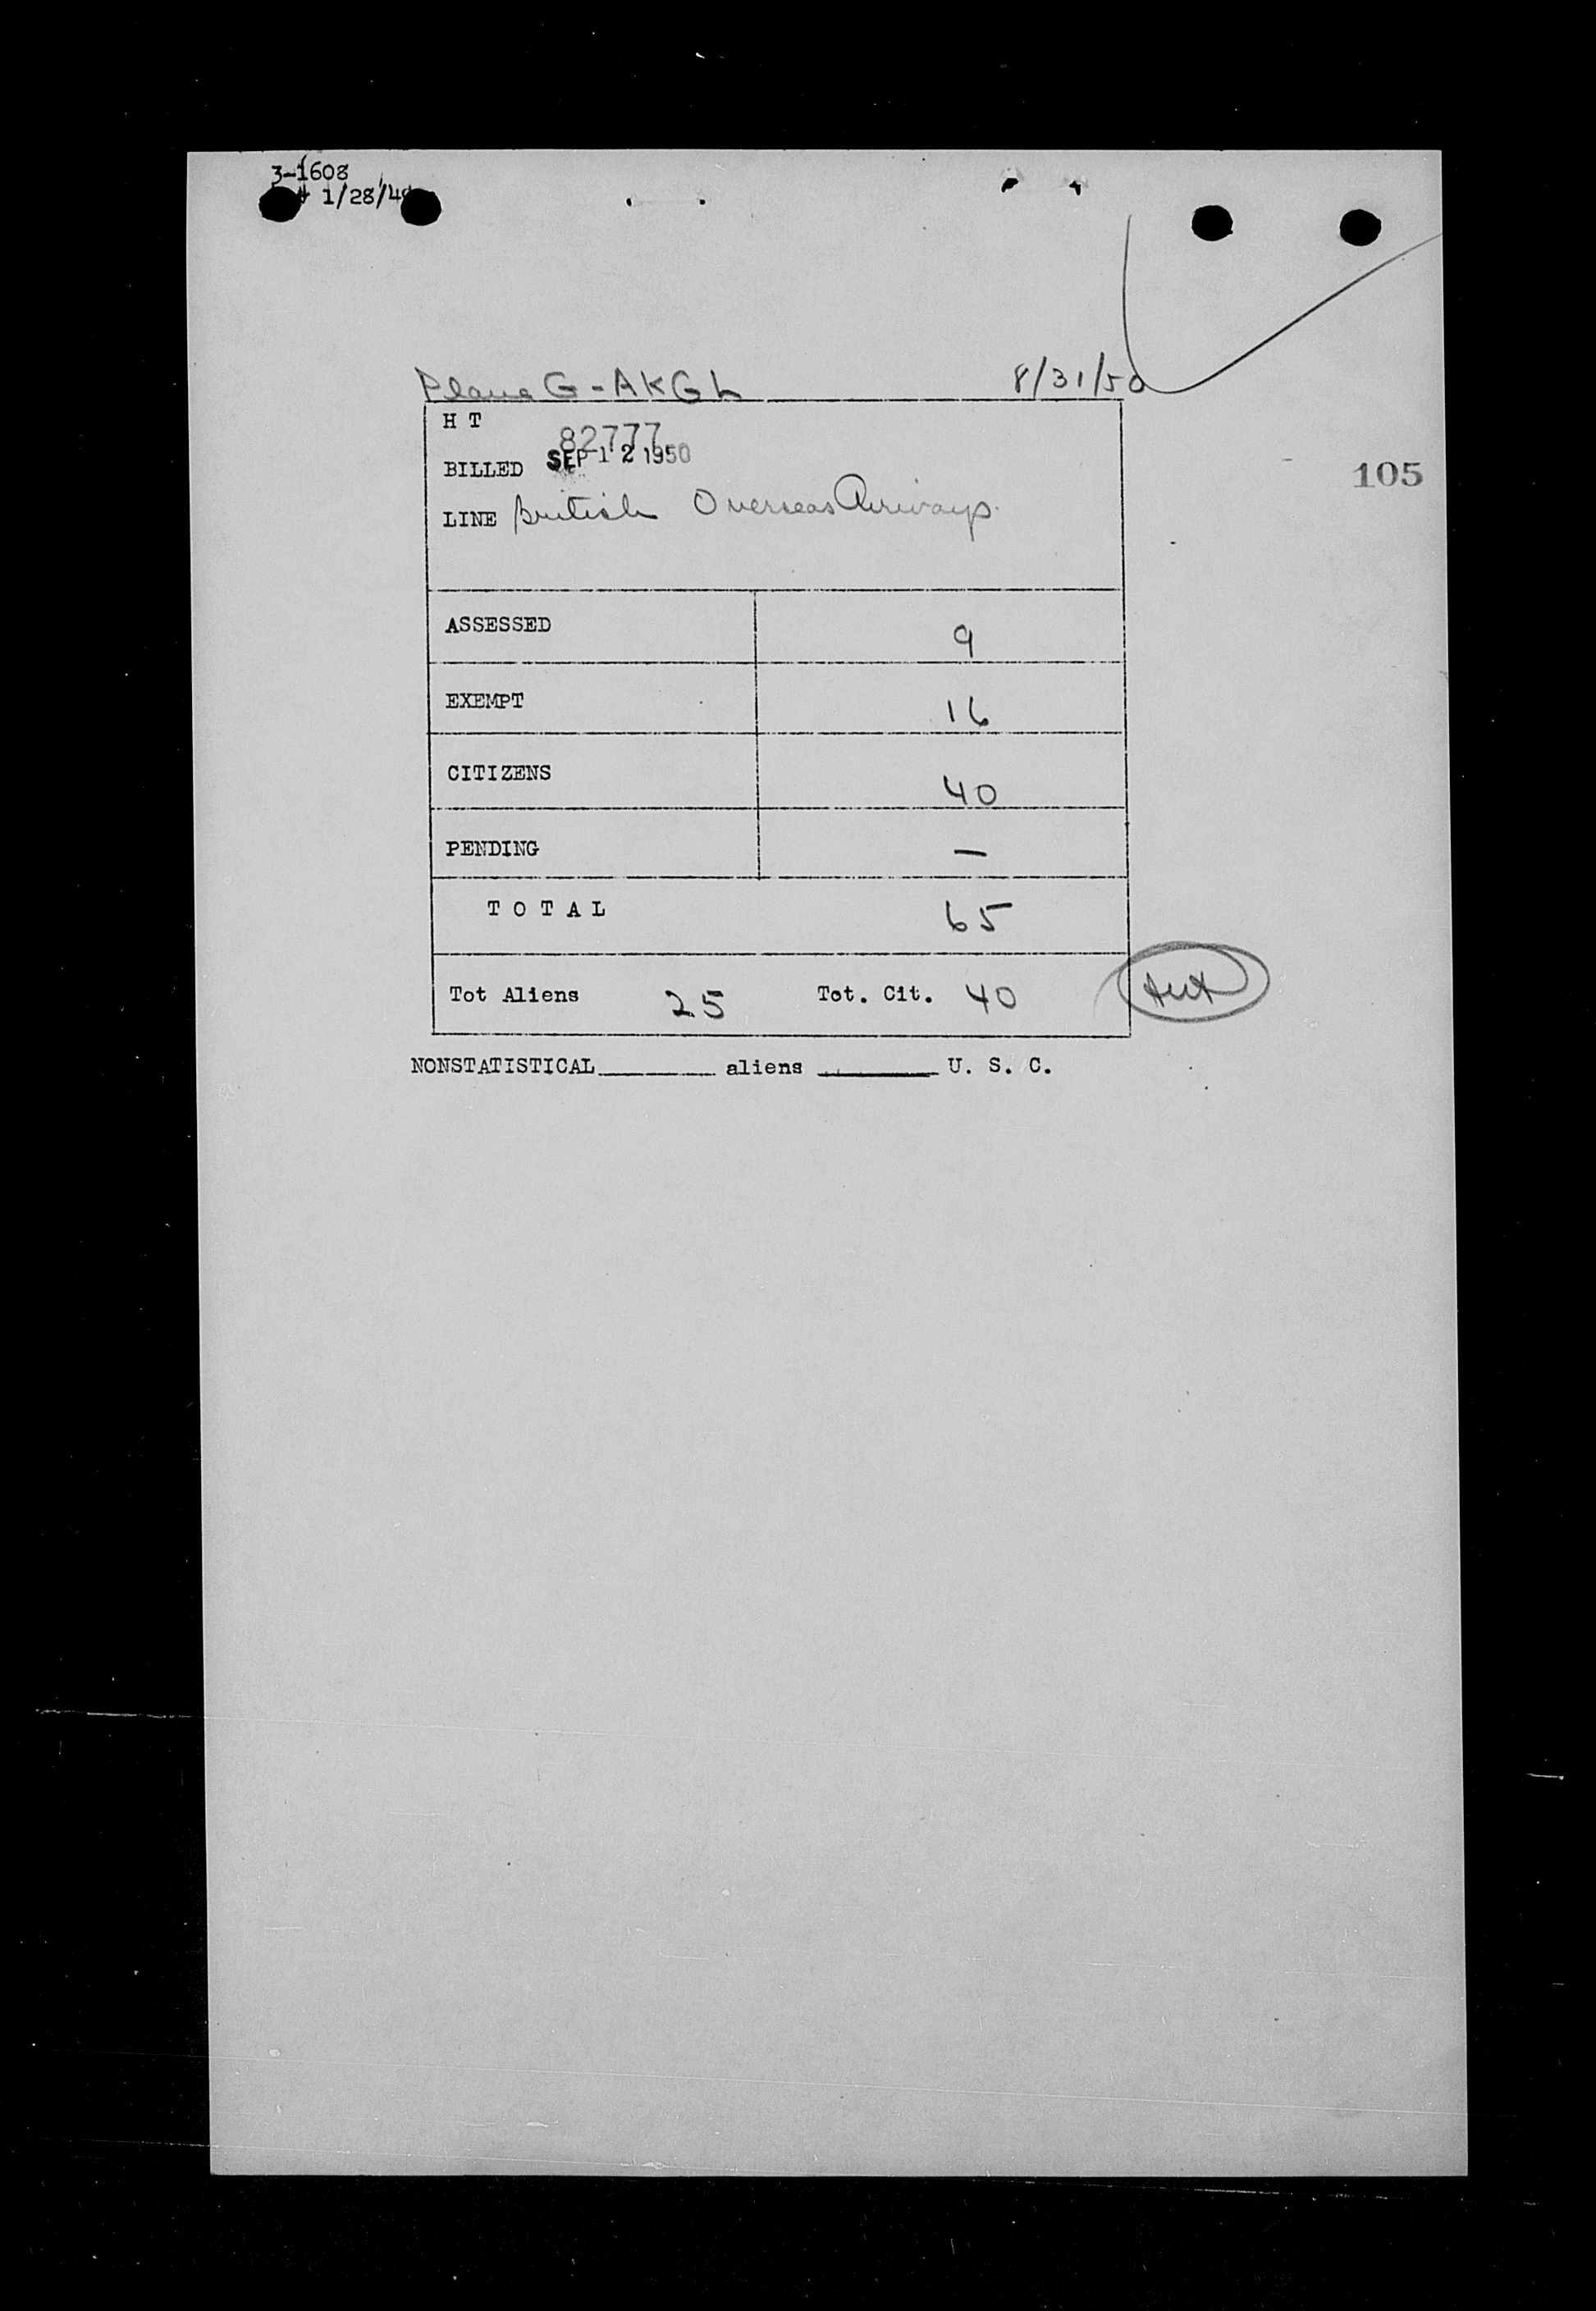 3-1608
1/28/48
Plane G-AKGL 8/31/50
H T 82777
BILLED SEP 12 1950
105
LINE British Overseas Airways.
ASSESSED 9
EXEMPT 16
CITIZENS 40
PENDING —
T O T A L 65
Tot Aliens 25 Tot. Cit. 40
NONSTATISTICAL________ aliens ________ U. S. C.